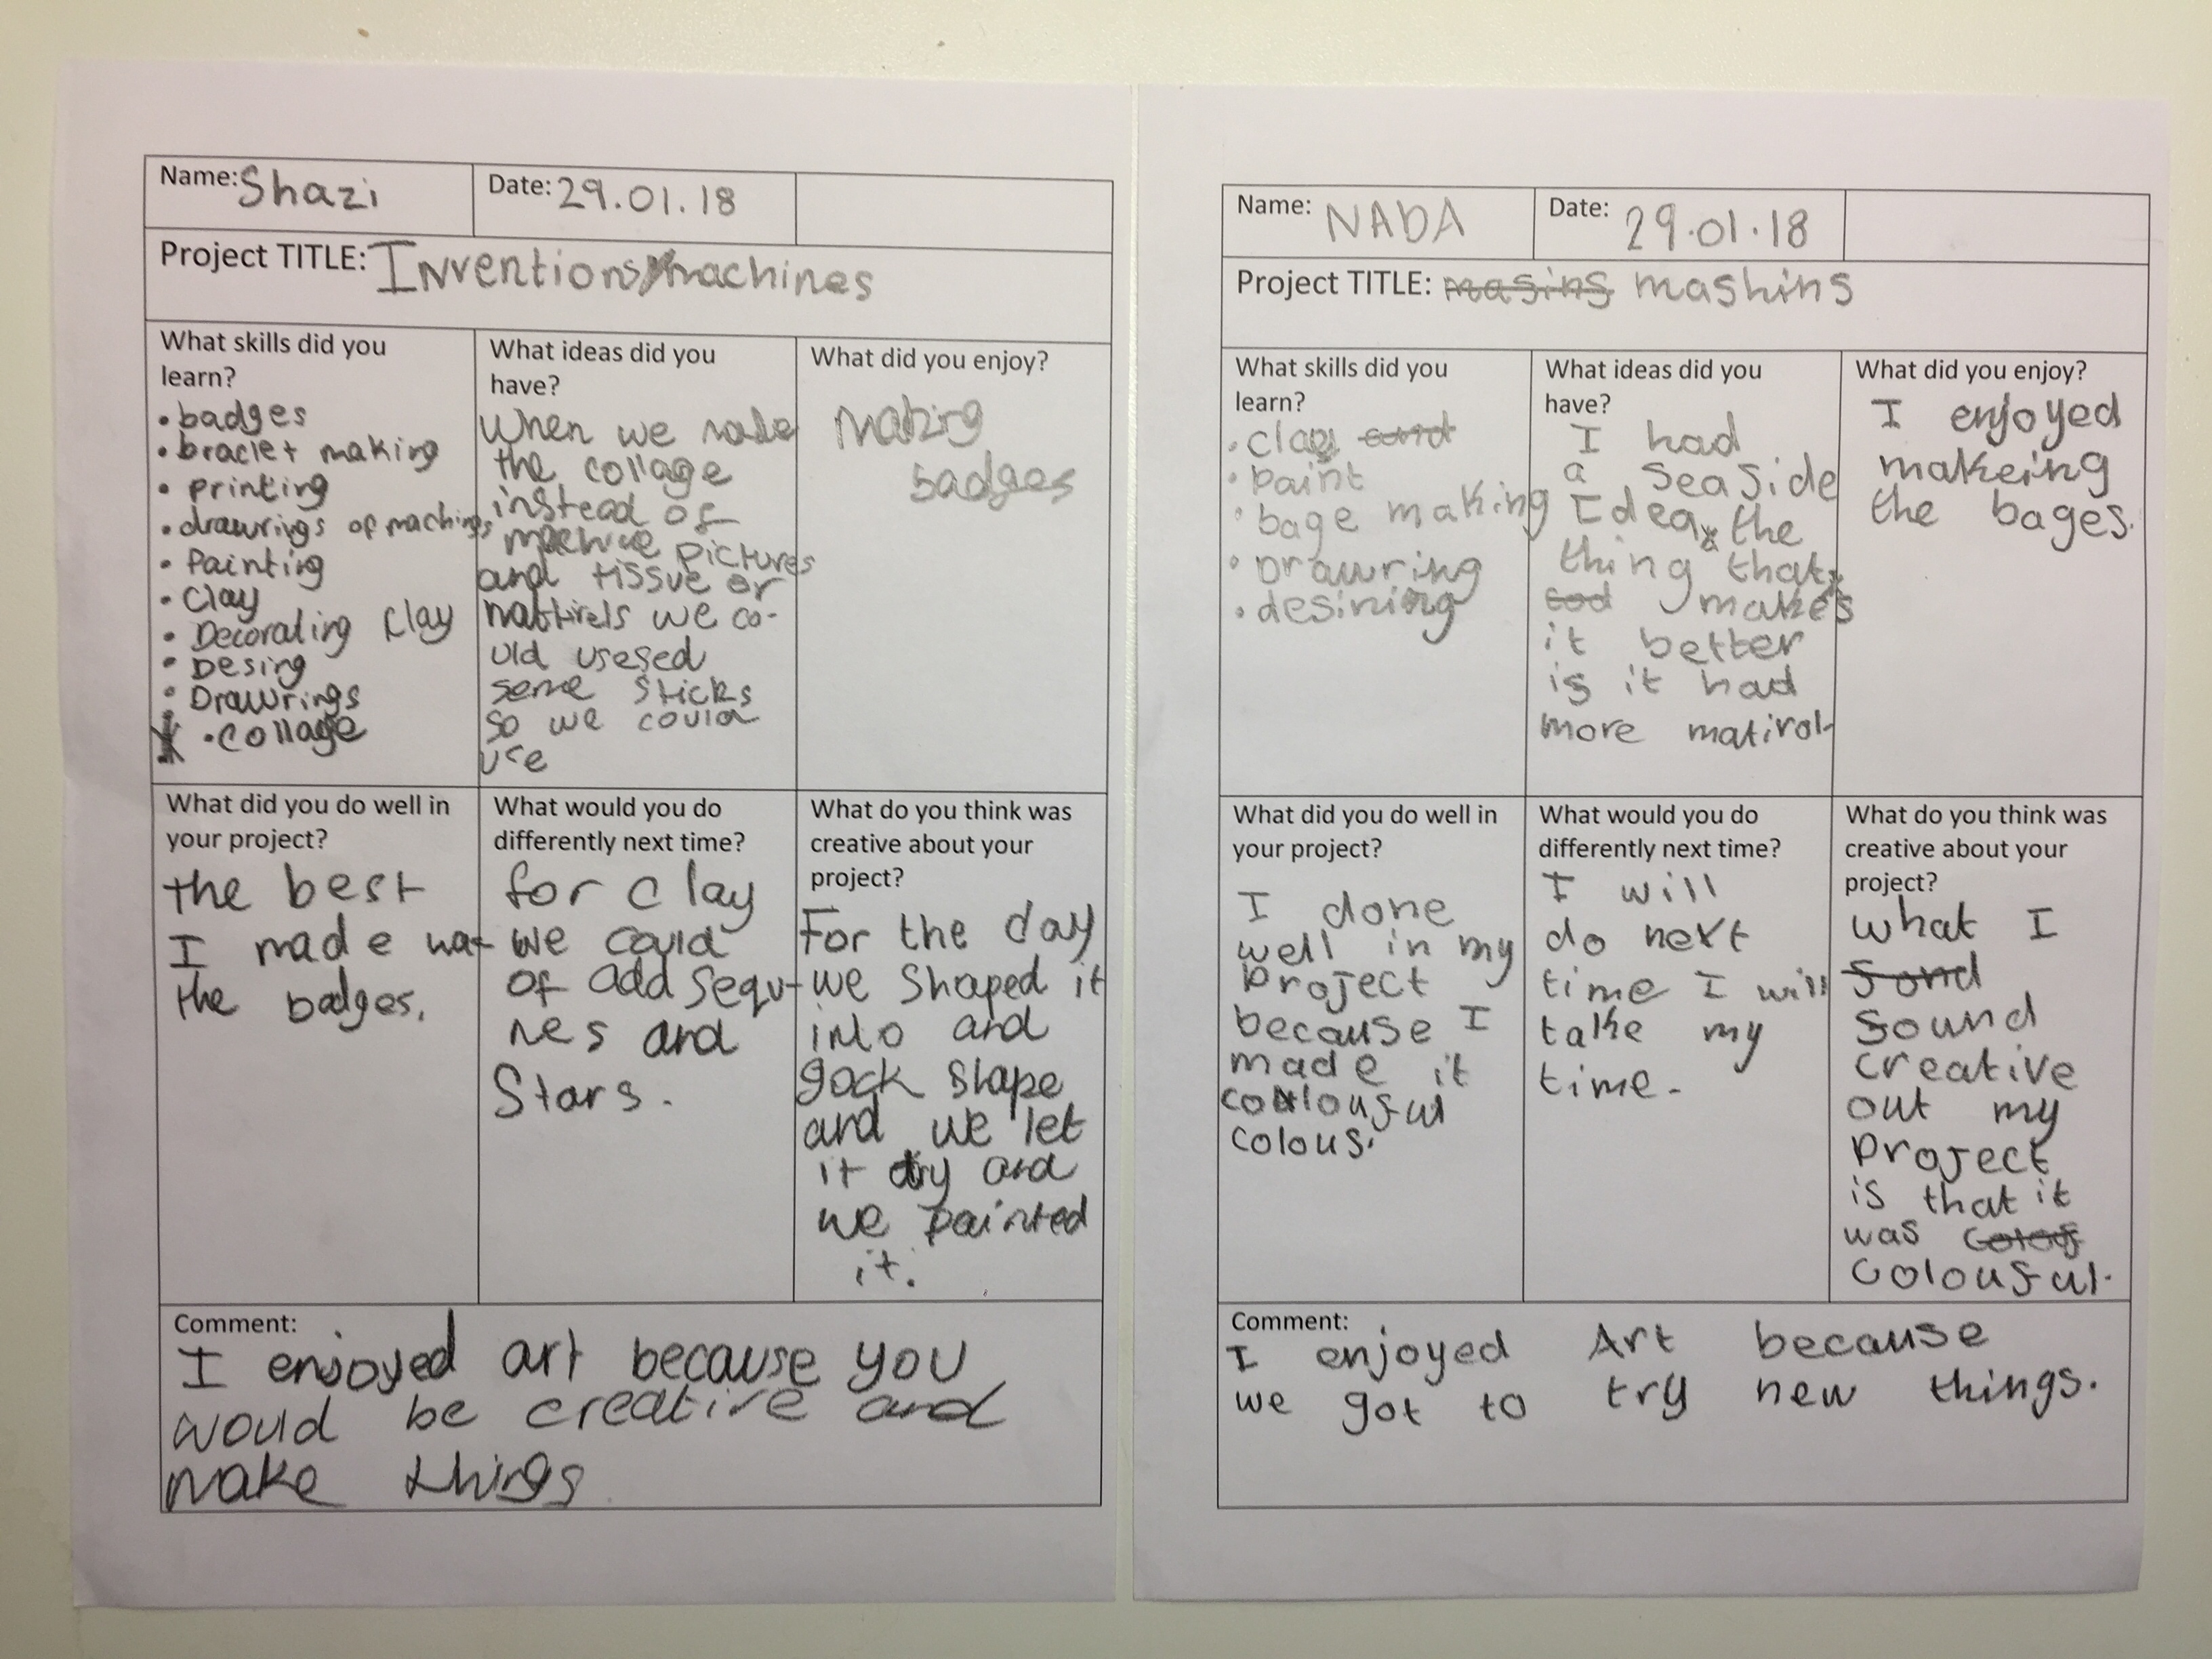 Name: Shazi
Date: 29.01.18
Project TITLE: Inventions machines
What skills did you
learn?
• badges
• braclet making
• printing
• drawrings of machings
• Painting
• Clay
• Decorating Clay
• Desing
• Drawrings
• Collage
What ideas did you
have?
When we made
the collage
instead of
pictures
and tissue or
we co-
uld usesed
some sticks
so we could
use
What did you enjoy?
Making
badges
What did you do well in
your project?
the best
I made wa-
the badges.
What would you do
differently next time?
for clay
we could
of add sequ-
nes and
Stars.
What do you think was
creative about your
project?
For the day
we shaped it
into and
gock shape
and we let
it dry and
we painted
it.
Comment:
I enjoyed art because you
would be creative and
make things
Name: NADA
Date: 29.01.18
Project TITLE: masing mashins
What skills did you
learn?
• clay and
• paint
• bage making
• Drawring
• desining
What ideas did you
have?
I had
a seaside
Idea the
thing that
makes
it better
is it had
more matirol
What did you enjoy?
I enjoyed
makeing
the bages.
What did you do well in
your project?
I done
well in my
project
because I
made it
coulouful
colous.
What would you do
differently next time?
I will
do next
time I will
take my
time.
What do you think was
creative about your
project?
what I
sond
sound
creative
out my
project
is that it
was
colouful.
Comment:
I enjoyed Art because
we got to try new things.